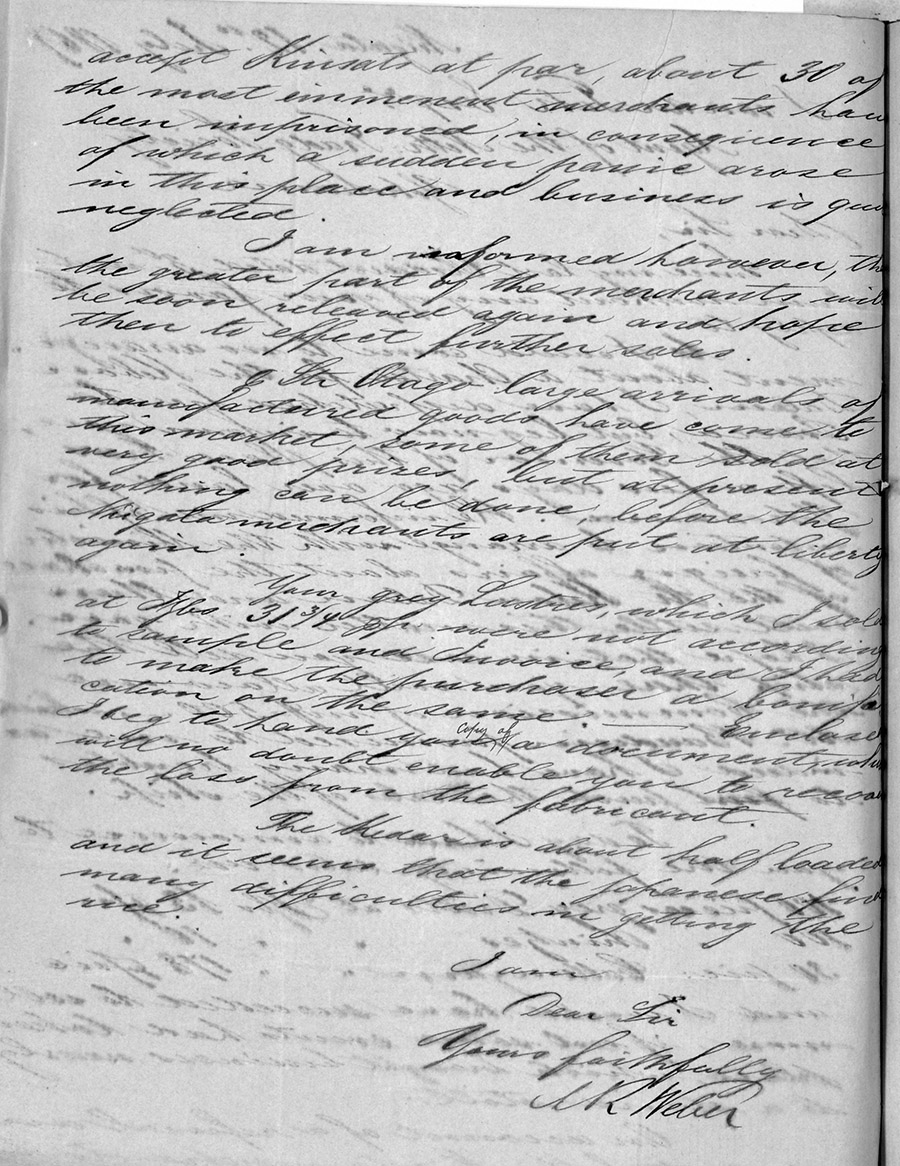 accept Kinsats at par, about 30 of
the most immenent merchants have
been imprisoned, in consequence
of which a sudden panic arose
in this place and business is
neglected.
I am informed however,
the greater part of the merchants will
be soon released again and hope
then to effect further sales.
Str Otago large arrivals of
manufactured goods have come to
this market, some of them sold at
very good prizes, but at present
nothing can be done, before the
Niigata merchants are put at liberty
again.
Your grey Lustres, which I sold
at 31 3/4 were not according
to sample and Invoice, and I had
to make the purchaser a bonifi
cation on the same. — Enclosed
I beg to hand you copy of a document,
will no doubt enable you to recover
the loss from the fabricant.
The is about half loaded
and it seems that the Japanese find
many difficulties in getting the
rice.
I am
Dear Sir
Yours faithfully
Weber